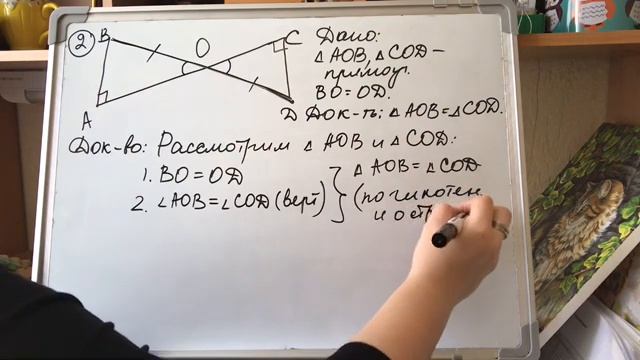 2
B
O
C
A
D
Дано:
△AOB, △COD –
прямоуг.
BO = OD.
Док-ть: △AOB = △COD.
Док-во: Рассмотрим △ AOB и △ COD:
1. BO = OD
2. ∠AOB = ∠COD (верт)
△ AOB = △ COD
(по гипотен
и ост